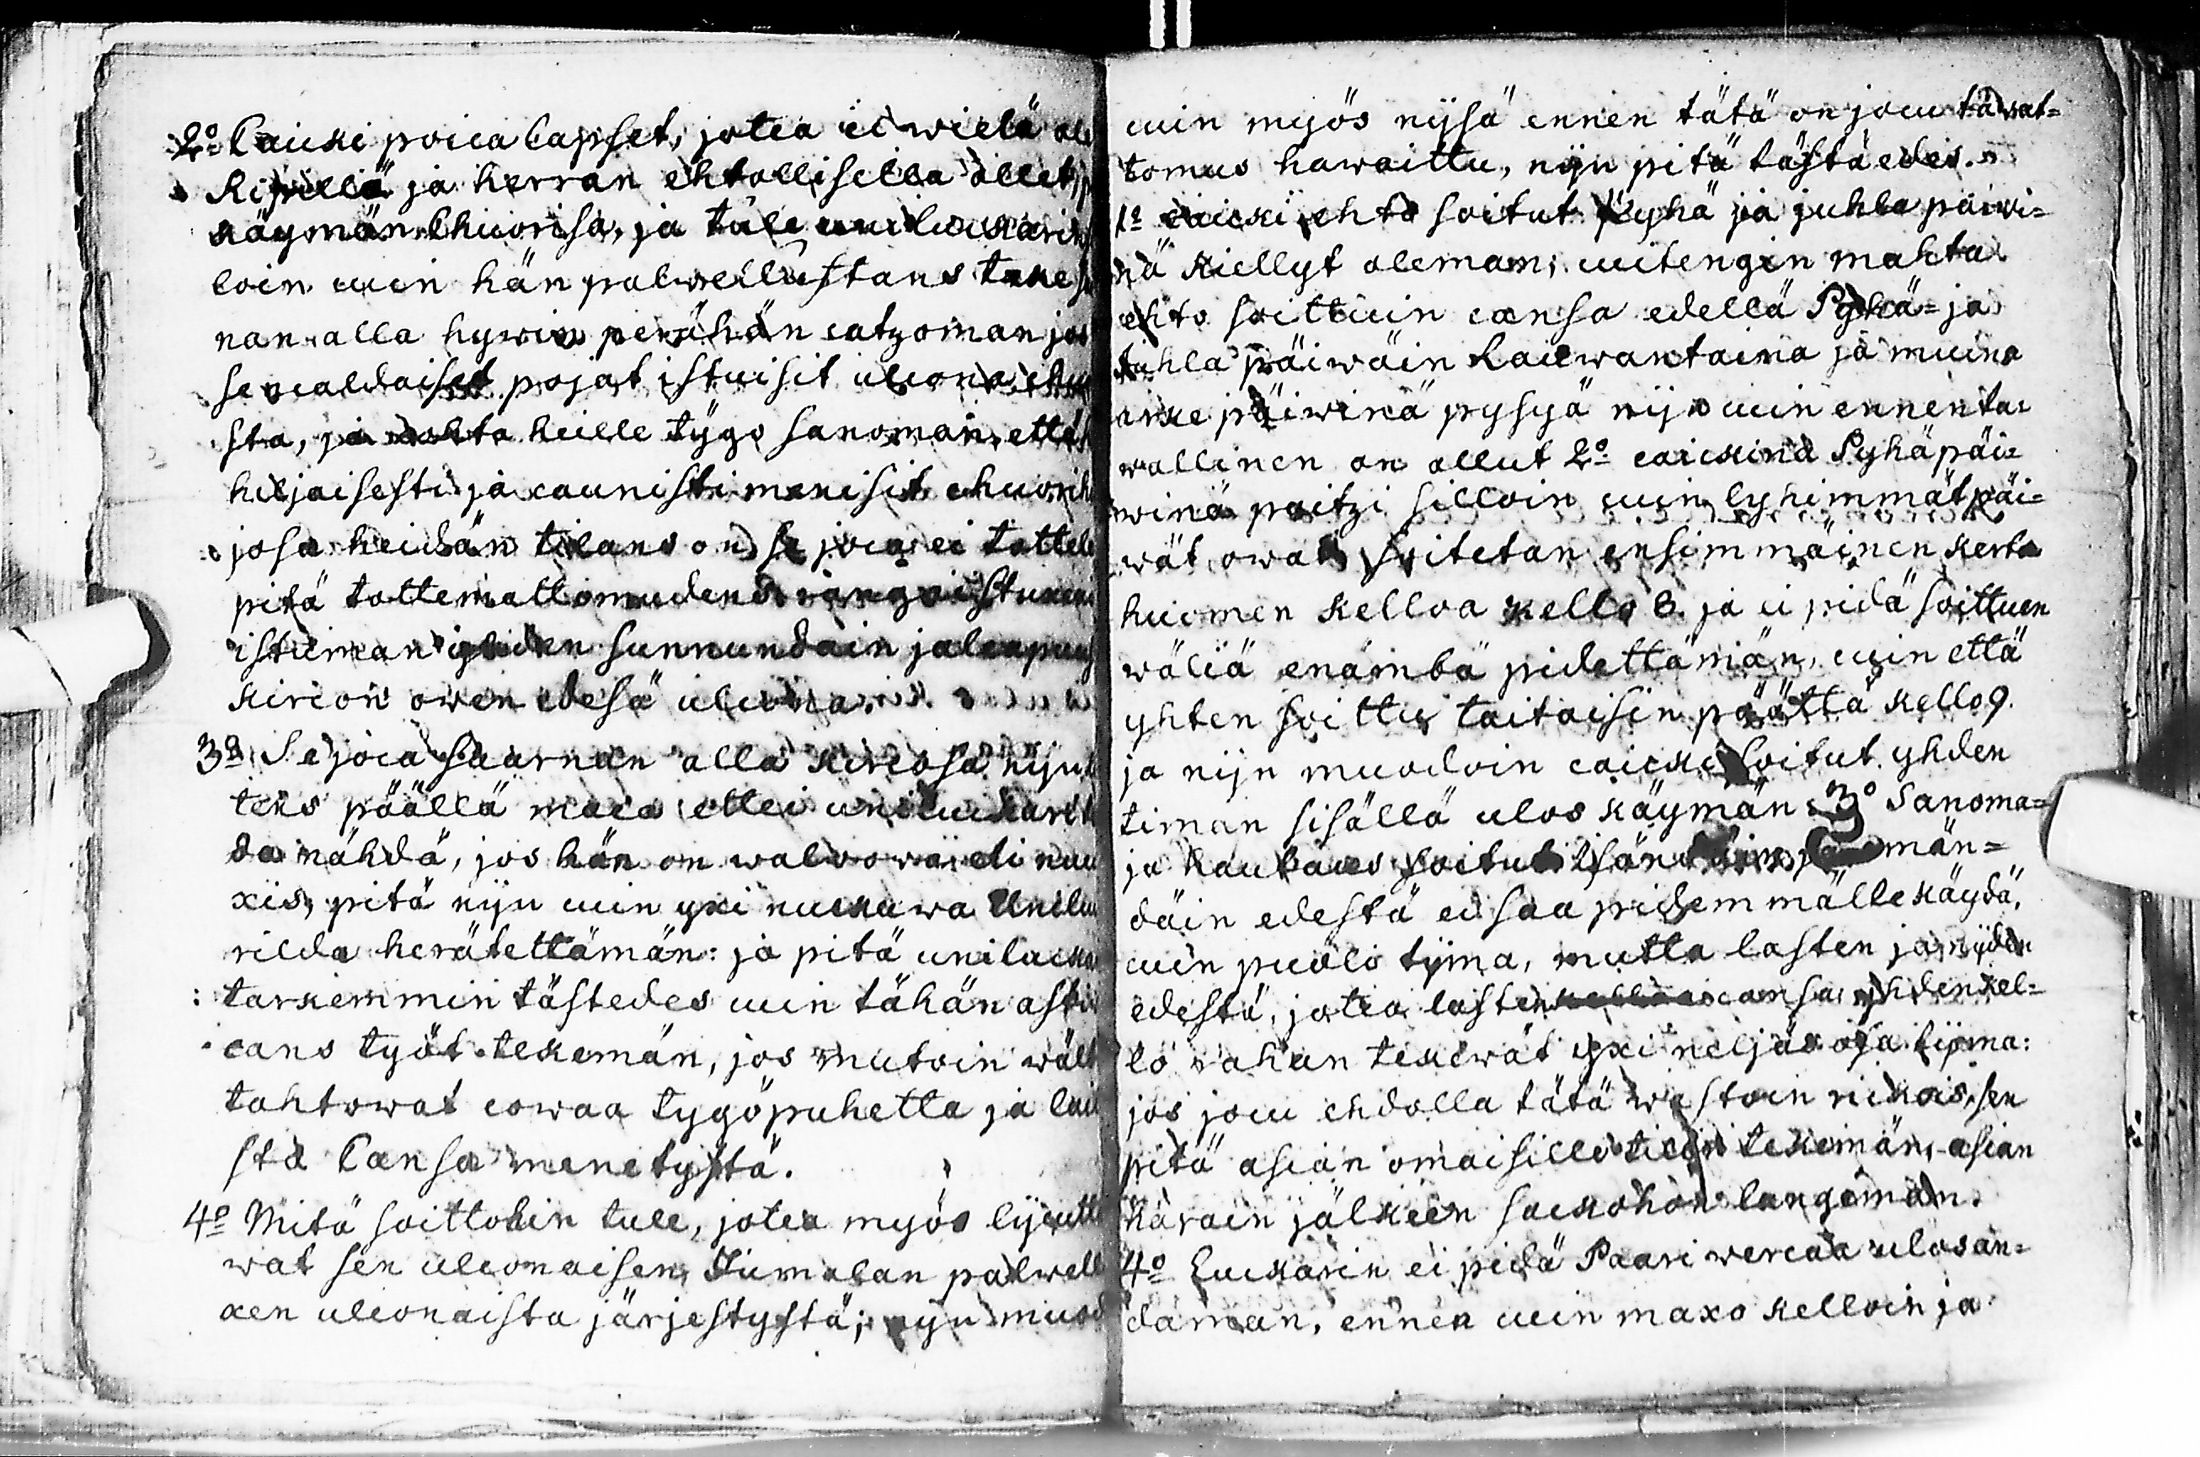 2:o Caicki poica lapset, jotca ei wielä ole
Ripillä ja herran ehtollisella ollet,
käymän Chuorisa, ja tule uniluckarin
loin cuin hän palwellustans teke
nan alla hywin perähän catzoman jos
sencaldaiset pojat istuisit ulcona
sta, ja heille tygö sanoman, että
hiljaisesti ja caunisti menisit chuorih
josa heidän tilans on, se joca ei tottele
pitä tottemattomudens rangaistuxexi
istuman yhden sunnundain jalcapuus
kircon owen edesä ulcona.
3:o Se joca Saarnan alla kircosa nijn
tens päällä maca ettei unilukarit
da nähdä, jos hän on walwowa eli nuc
xis, pitä nijn cuin yxi nuckuwa Uniluc
rilda herätettämän: ja pitä unilucka
tarkemmin tästedes cuin tähän asti
cans työt tekemän, jos mutoin wält
tahtowat cowaa tygöpuhetta ja lail
sta Cansa menetystä.
4:o Mitä soittohin tule, jotca myös lijcutt
wat sen ulconaisen Jumalan palwell
xen ulconaista järjestystä; nijn muod
cuin myös nijsä ennen tätä on jocu tawat=
tomus hawaittu, nijn pitä tästä edes.
1:o caicki ehto soitut Pyhä ja juhla päiwi=
nä kiellyt oleman; cuitengin mahta
ehto soittuin cansa edellä Pyhä= ja
Juhla päiwäin Lauwantaina ja muina
arke päiwinä pysyä nijn cuin ennen ta=
wallinen on ollut 2:o caickina Pyhäpäi=
winä paitzi silloin cuin lyhimmät päi=
wät owat, soitetan ensimmäinen kerta
huomen kelloa kello 8. ja ei pidä soittuen
wäliä enämbä pidettämän, cuin että
yhten soittu taitaisin päättä kello 9.
ja nijn muodoin caicki soitut yhden
timan sisällä ulos käymän. 3:o Sanoma=
ja hautaus soitut Isändäin ja Emän=
däin edestä ei saa pidemmälle käydä,
cuin puoli tijma, mutta lasten ja nijden
edestä, jotca lasten cansa yhden kel=
lo rahan tekewät yxi neljäs osa tijma:
jos jocu ehdolla tätä wastoin rickois, sen
pitä asian omaisille tilin tekemän, asian
haarain jälkeen sackohon langeman.
4:o Luckarin ei pidä Paari wercaa ulosan=
daman, ennen cuin maxo kelloin ja